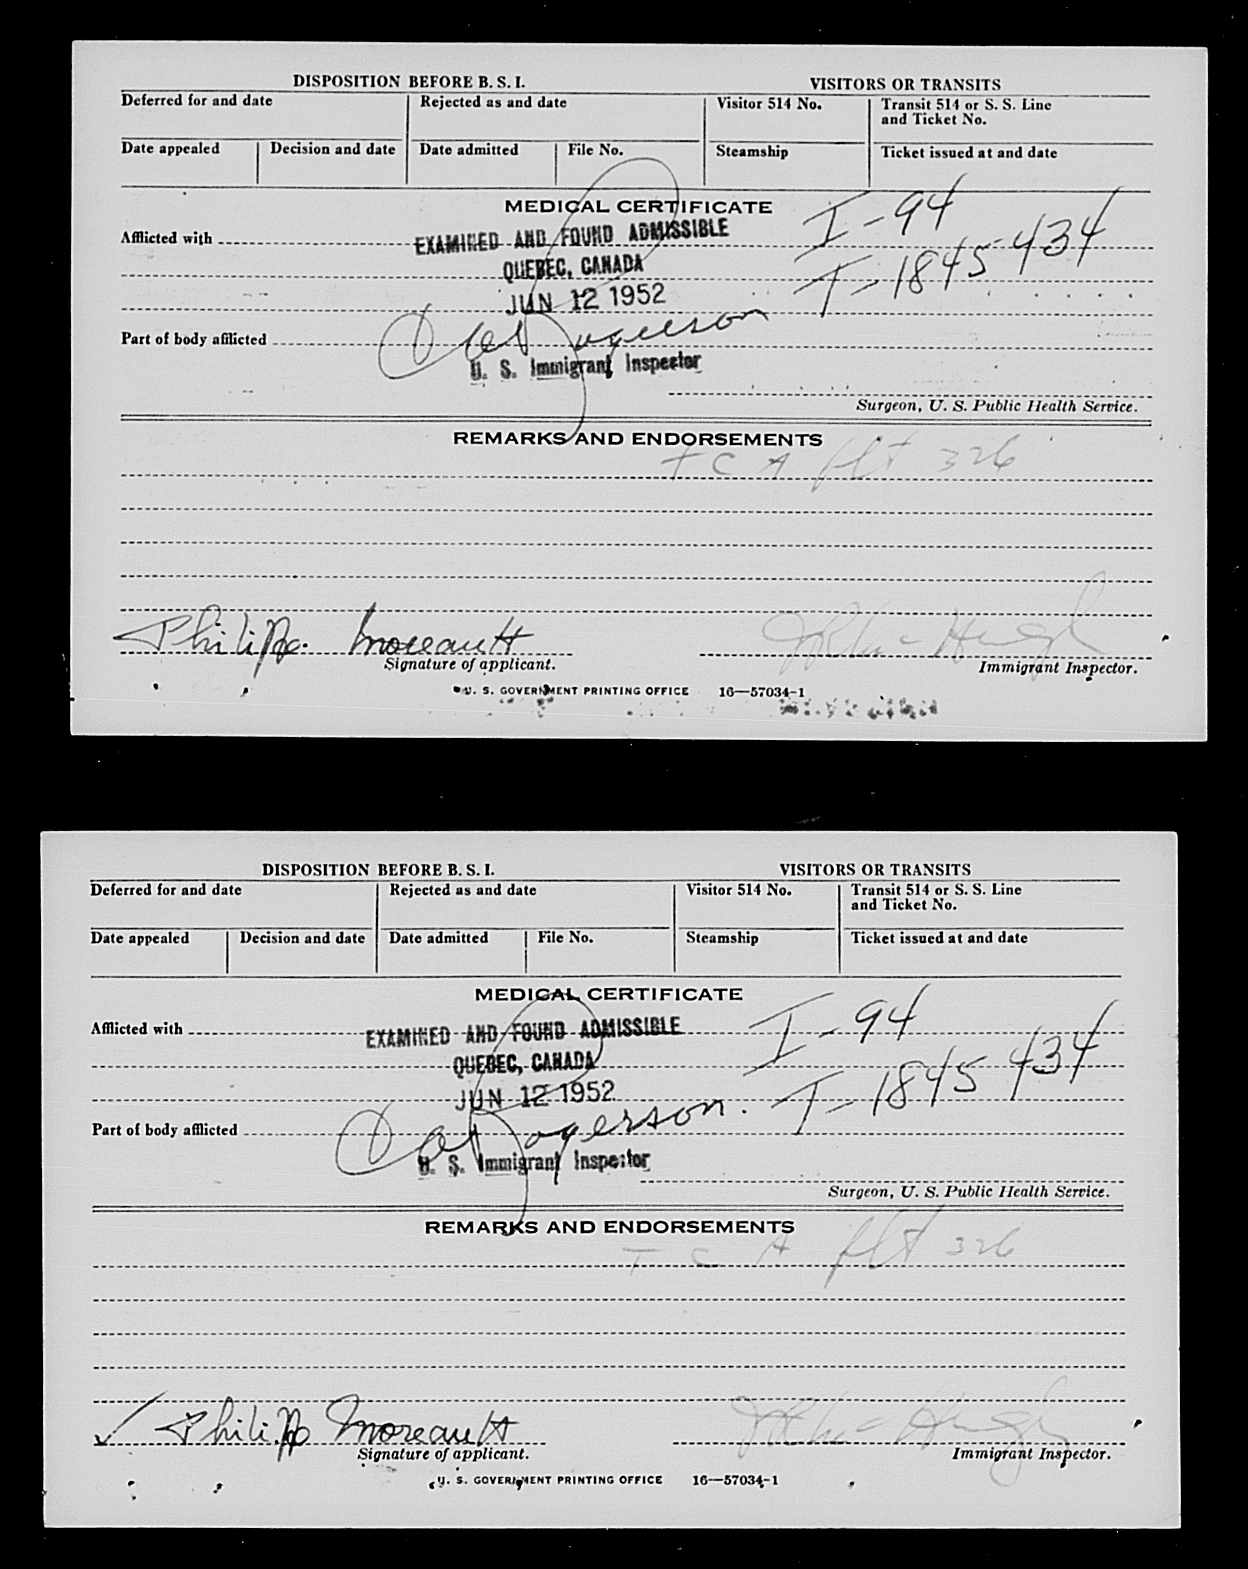 DISPOSITION BEFORE B. S. I. VISITORS OR TRANSITS
Deferred for and date Rejected as and date Visitor 514 No. Transit 514 or S. S. Line
and Ticket No.
Date appealed Decision and date Date admitted File No. Steamship Ticket issued at and date
MEDICAL CERTIFICATE
I-94
Afflicted with EXAMINED AND FOUND ADMISSIBLE
QUEBEC, CANADA T-1845-434
JUN 12 1952
Part of body afflicted
U. S. Immigrant Inspector
Surgeon, U. S. Public Health Service.
REMARKS AND ENDORSEMENTS
T C A flt 326
Philippe Moreault
Signature of applicant. Immigrant Inspector.
U. S. GOVERNMENT PRINTING OFFICE 16—57034-1
DISPOSITION BEFORE B. S. I. VISITORS OR TRANSITS
Deferred for and date Rejected as and date Visitor 514 No. Transit 514 or S. S. Line
and Ticket No.
Date appealed Decision and date Date admitted File No. Steamship Ticket issued at and date
MEDICAL CERTIFICATE
I-94
Afflicted with EXAMINED AND FOUND ADMISSIBLE
QUEBEC, CANADA T-1845 434
JUN 12 1952
Part of body afflicted
U. S. Immigrant Inspector
Surgeon, U. S. Public Health Service.
REMARKS AND ENDORSEMENTS
T C A flt 326
Philipp Moreault
Signature of applicant. Immigrant Inspector.
U. S. GOVERNMENT PRINTING OFFICE 16—57034-1